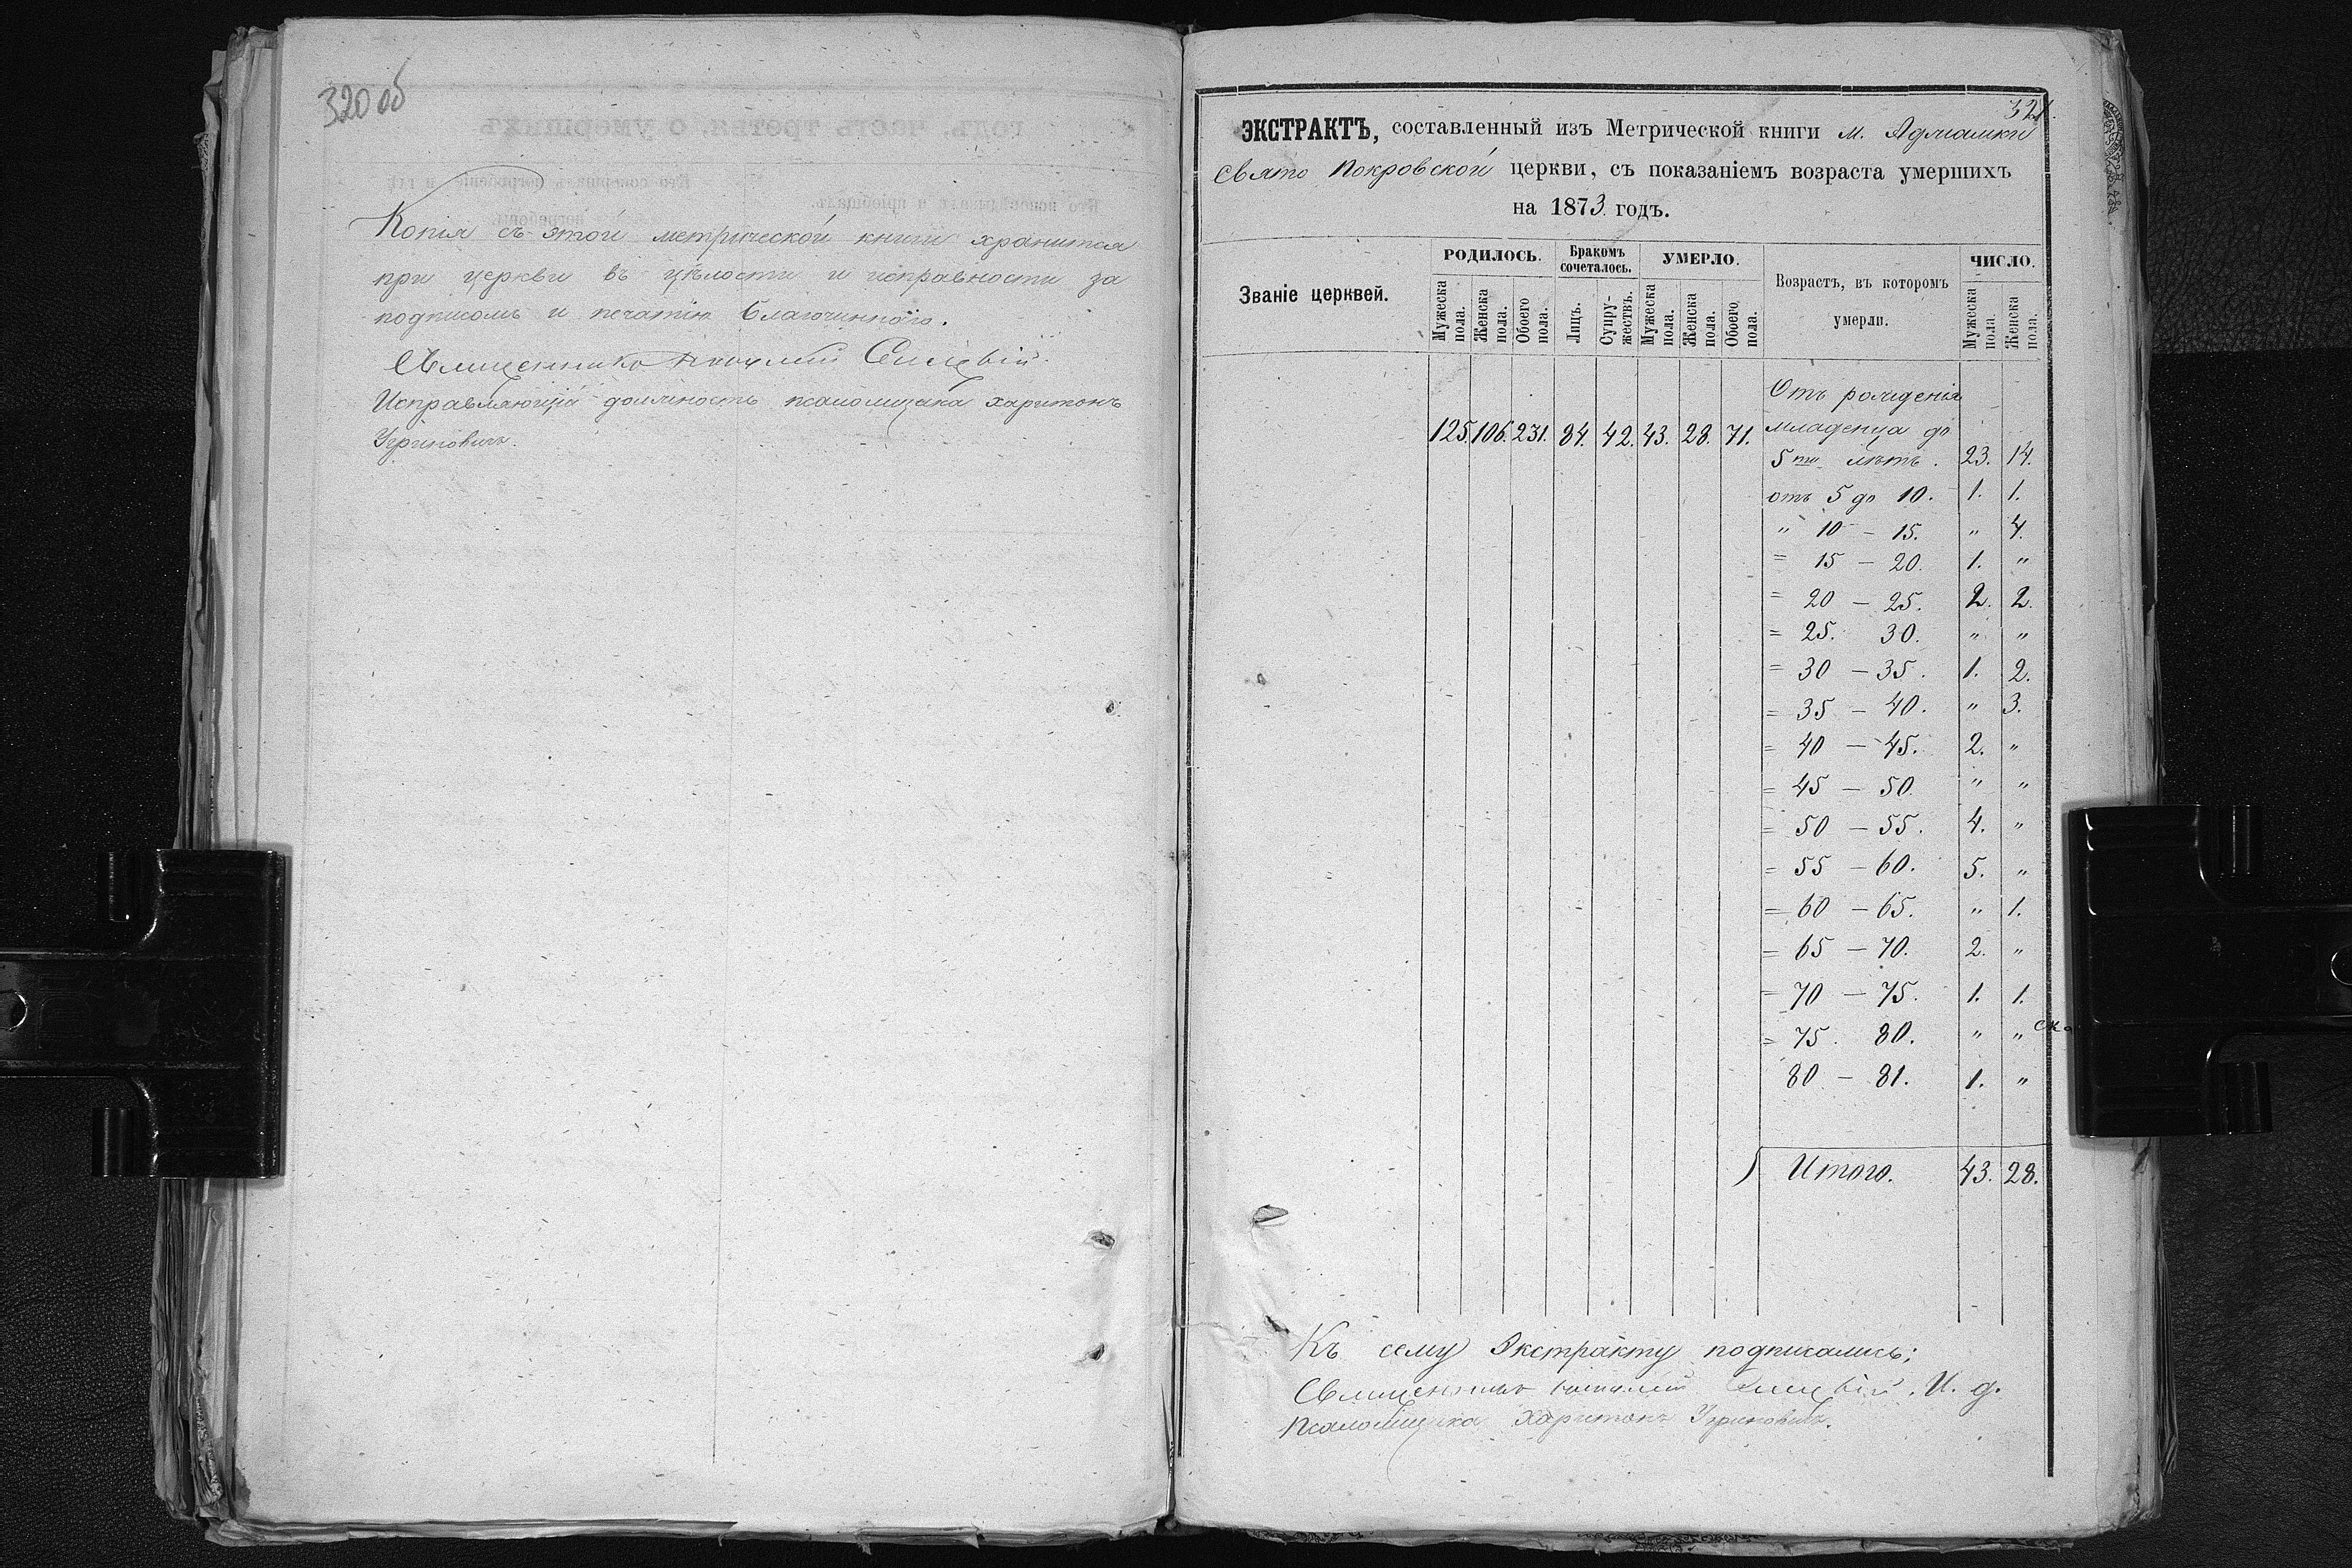 320 об
Копія съ этой метрической книги хранится
при церкви въ цѣлости и исправности за
подписомъ и печатію благочиннаго.
Священникъ
Исправляющій должность псаломщика Харитонъ
Угриновичъ.
321.
ЭКСТРАКТЪ, составленный изъ Метрической книги м.
Свято Покровской церкви, съ показаніемъ возраста умершихъ
на 1873 годъ.
Званіе церквей. РОДИЛОСЬ. Бракомъ сочеталось. УМЕРЛО. Возрастъ, въ которомъ умерли. ЧИСЛО.
Мужеска пола. Женска пола. Обоего пола. Лицъ. Супружествъ. Мужеска пола. Женска пола. Обоего пола. Мужеска пола. Женска пола.
Отъ рожденія
125. 106. 231. 84. 42. 43. 28. 71. младенца до
5ти лѣтъ. 23. 14.
отъ 5 до 10. 1. 1.
" 10 – 15. " 4.
= 15 – 20. 1. "
= 20 – 25. 2. 2.
= 25. 30. " "
= 30 – 35. 1. 2.
= 35 – 40. " 3.
= 40 – 45. 2. "
= 45 – 50. " "
= 50 – 55. 4. "
= 55 – 60. 5. "
= 60 – 65. " 1.
= 65 – 70. 2. "
= 70 – 75. 1. 1.
= 75. 80. " "
80 – 81. 1. "
Итого. 43. 28.
Къ сему Экстракту подписались:
Священникъ И. д.
Псаломщика Харитонъ Угриновичъ.